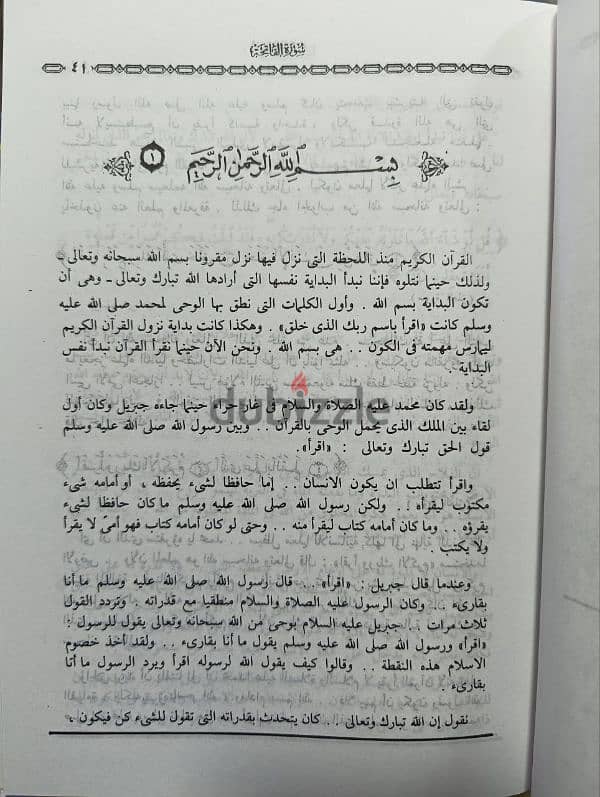 سورة الفاتحة
٤١
بسم الله الرحمن الرحيم ١
القرآن الكريم منذ اللحظة التى نزل فيها نزل مقرونا بسم الله سبحانه وتعالى ـ
ولذلك حينما نتلوه فإننا نبدأ البداية نفسها التى أرادها الله تبارك وتعالى ـ وهى أن
تكون البداية بسم الله . وأول الكلمات التى نطق بها الوحى لمحمد صلى الله عليه
وسلم كانت «اقرأ باسم ربك الذى خلق» . وهكذا كانت بداية نزول القرآن الكريم
ليمارس مهمته فى الكون . . هى بسم الله . ونحن الآن حينما نقرأ القرآن نبدأ نفس
البداية .
ولقد كان محمد عليه الصلاة والسلام فى غار حراء حينما جاءه جبريل وكان أول
لقاء بين الملك الذى يحمل الوحى بالقرآن . . وبين رسول الله صلى الله عليه وسلم
قول الحق تبارك وتعالى : «اقرأ».
واقرأ تتطلب ان يكون الانسان . . إما حافظا لشىء يحفظه ، أو أمامه شىء
مكتوب ليقرأه . . ولكن رسول الله صلى الله عليه وسلم ما كان حافظا لشىء
يقرؤه . . وما كان أمامه كتاب ليقرأ منه . . وحتى لو كان أمامه كتاب فهو أمىّ لا يقرأ
ولا يكتب .
وعندما قال جبريل : «اقرأ» . . قال رسول الله صلى الله عليه وسلم ما أنا
بقارىء . . وكان الرسول عليه الصلاة والسلام منطقيا مع قدراته . وتردد القول
ثلاث مرات . . جبريل عليه السلام بوحى من الله سبحانه وتعالى يقول للرسول :
«اقرأ» ورسول الله صلى الله عليه وسلم يقول ما أنا بقارىء . . ولقد أخذ خصوم
الاسلام هذه النقطة . . وقالوا كيف يقول الله لرسوله اقرأ ويرد الرسول ما أنا
بقارىء .
نقول إن الله تبارك وتعالى . . كان يتحدث بقدراته التى تقول للشىء كن فيكون ،
dubizzle